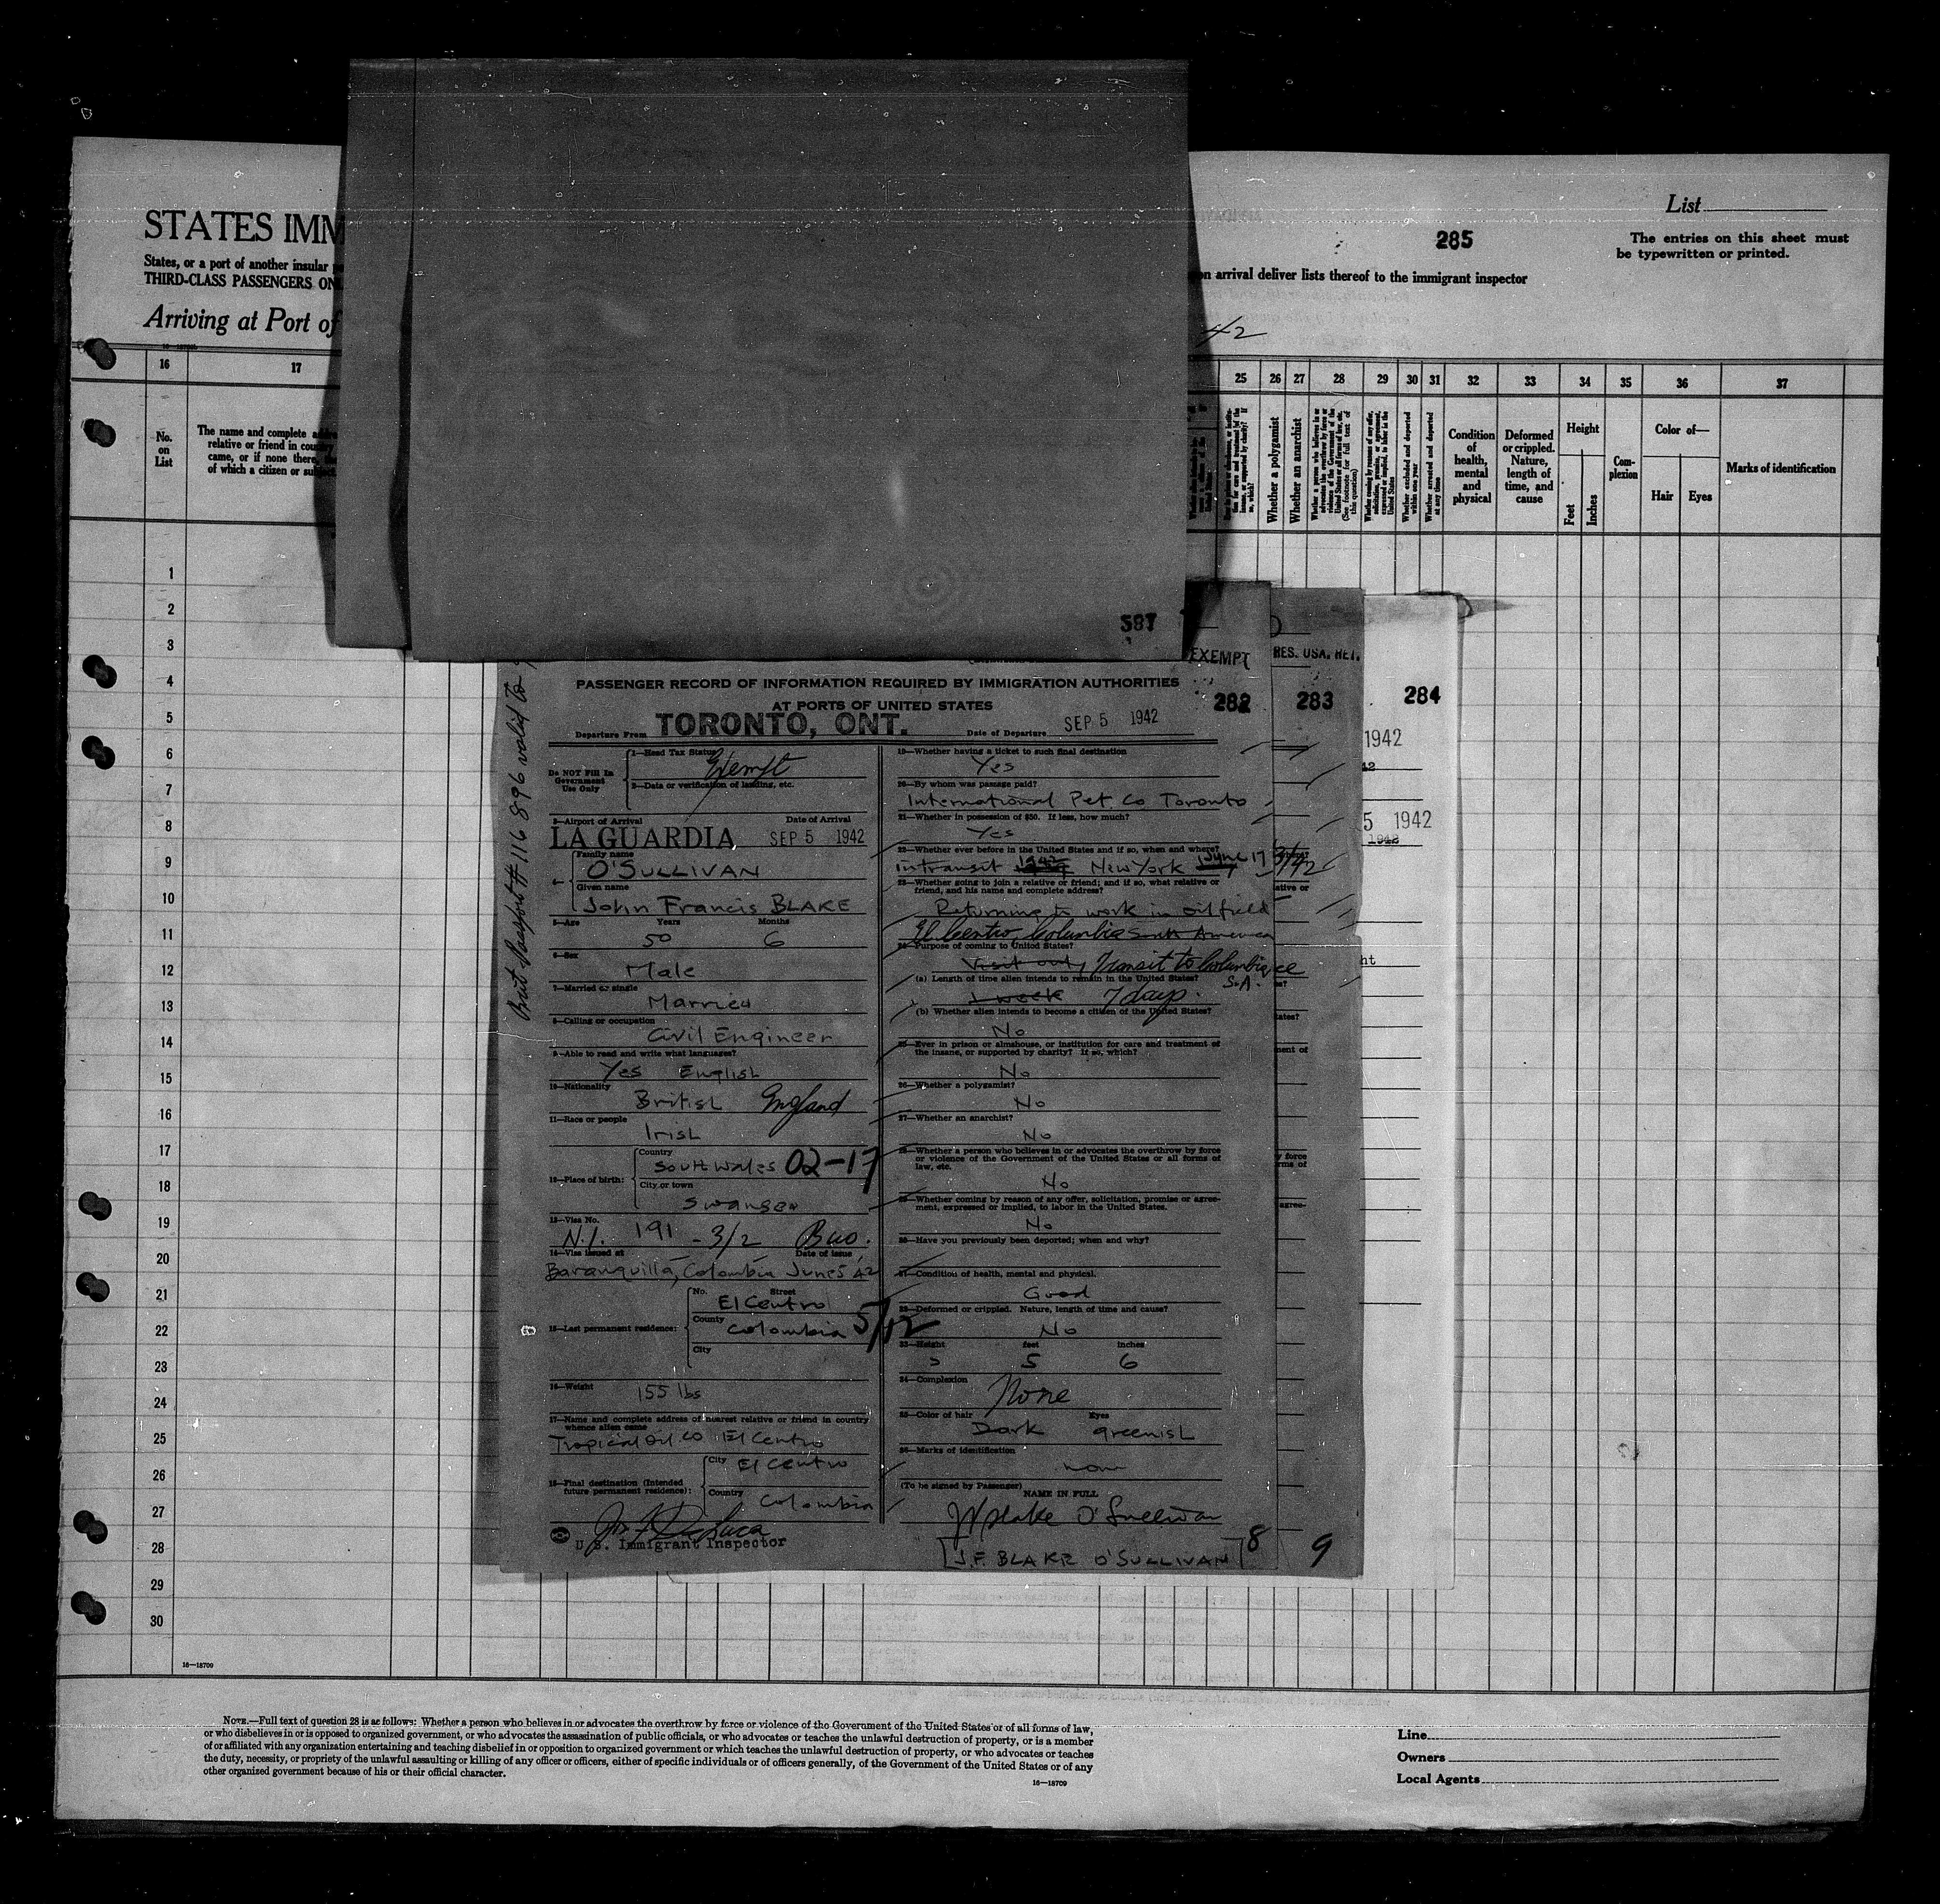 STATES IMM
States, or a port of another insular
THIRD-CLASS PASSENGERS ON
Arriving at Port of
List
285
The entries on this sheet must
be typewritten or printed.
on arrival deliver lists thereof to the immigrant inspector
42
16 17 25 26 27 28 29 30 31 32 33 34 35 36 37
No.
on
List
The name and complete
relative or friend in
came, or if none there,
of which a citizen or
Whether a polygamist
Whether an anarchist
Whether excluded and deported within one year
Whether arrested and deported at any time
Condition
of
health,
mental
and
physical
Deformed
or crippled.
Nature,
length of
time, and
cause
Height
Feet
Inches
Com-
plexion
Color of—
Hair Eyes
Marks of identification
1
2
3
4
5
6
7
8
9
10
11
12
13
14
15
16
17
18
19
20
21
22
23
24
25
26
27
28
29
30
16—18709
587
EXEMPT
RES. USA. RET.
282
283
284
1942
5 1942
1942
Brit Passport # 116896 valid to
PASSENGER RECORD OF INFORMATION REQUIRED BY IMMIGRATION AUTHORITIES
AT PORTS OF UNITED STATES
Departure From TORONTO, ONT. Date of Departure SEP 5 1942
Do NOT Fill In
Government
Use Only
1—Head Tax Status
Exempt
2—Data or verification of landing, etc.
3—Airport of Arrival Date of Arrival
LA GUARDIA SEP 5 1942
4—
Family name
O'SULLIVAN
Given name
John Francis BLAKE
5—Age Years Months
50 6
6—Sex
Male
7—Married or single
Married
8—Calling or occupation
Civil Engineer
9—Able to read and write what languages?
Yes English
10—Nationality
British England
11—Race or people
Irish
12—Place of birth:
Country
South Wales 02-17
City or town
Swansea
13—Visa No.
N.I. 191 - 3/2 Bus.
14—Visa issued at Date of issue
Baranquilla, Colombia June 5 42
15—Last permanent residence:
No. Street
El Centro
County
Colombia 5/12
City
16—Weight
155 lbs
17—Name and complete address of nearest relative or friend in country
whence alien came
Tropical Oil Co El Centro
18—Final destination (Intended
future permanent residence):
City El Centro
Country Colombia
U. S. Immigrant Inspector
19—Whether having a ticket to such final destination
Yes
20—By whom was passage paid?
International Pet. Co Toronto
21—Whether in possession of $50. If less, how much?
Yes
22—Whether ever before in the United States and if so, when and where?
intransit 1942 New York June 17
23—Whether going to join a relative or friend; and if so, what relative or
friend, and his name and complete address?
Returning to work in oil field
El Centro, Columbia South America
24—Purpose of coming to United States?
Visit only Transit to Columbia
S.A.
(a) Length of time alien intends to remain in the United States?
1 week 7 days.
(b) Whether alien intends to become a citizen of the United States?
No
25—Ever in prison or almshouse, or institution for care and treatment of
the insane, or supported by charity? If so, which?
No
26—Whether a polygamist?
No
27—Whether an anarchist?
No
28—Whether a person who believes in or advocates the overthrow by force
or violence of the Government of the United States or all forms of
law, etc.
No
29—Whether coming by reason of any offer, solicitation, promise or agree-
ment, expressed or implied, to labor in the United States.
No
30—Have you previously been deported; when and why?
31—Condition of health, mental and physical.
Good
32—Deformed or crippled. Nature, length of time and cause?
No
33—Height feet inches
5 6
34—Complexion
None
35—Color of hair Eyes
Dark greenish
36—Marks of identification
(To be signed by Passenger)
NAME IN FULL
J F Blake O'Sullivan
[J.F. BLAKE O'SULLIVAN]
8
9
NOTE.—Full text of question 28 is as follows: Whether a person who believes in or advocates the overthrow by force or violence of the Government of the United States or of all forms of law,
or who disbelieves in or is opposed to organized government, or who advocates the assassination of public officials, or who advocates or teaches the unlawful destruction of property, or is a member
of or affiliated with any organization entertaining and teaching disbelief in or opposition to organized government or which teaches the unlawful destruction of property, or who advocates or teaches
the duty, necessity, or propriety of the unlawful assaulting or killing of any officer or officers, either of specific individuals or of officers generally, of the Government of the United States or of any
other organized government because of his or their official character.
16—18709
Line
Owners
Local Agents